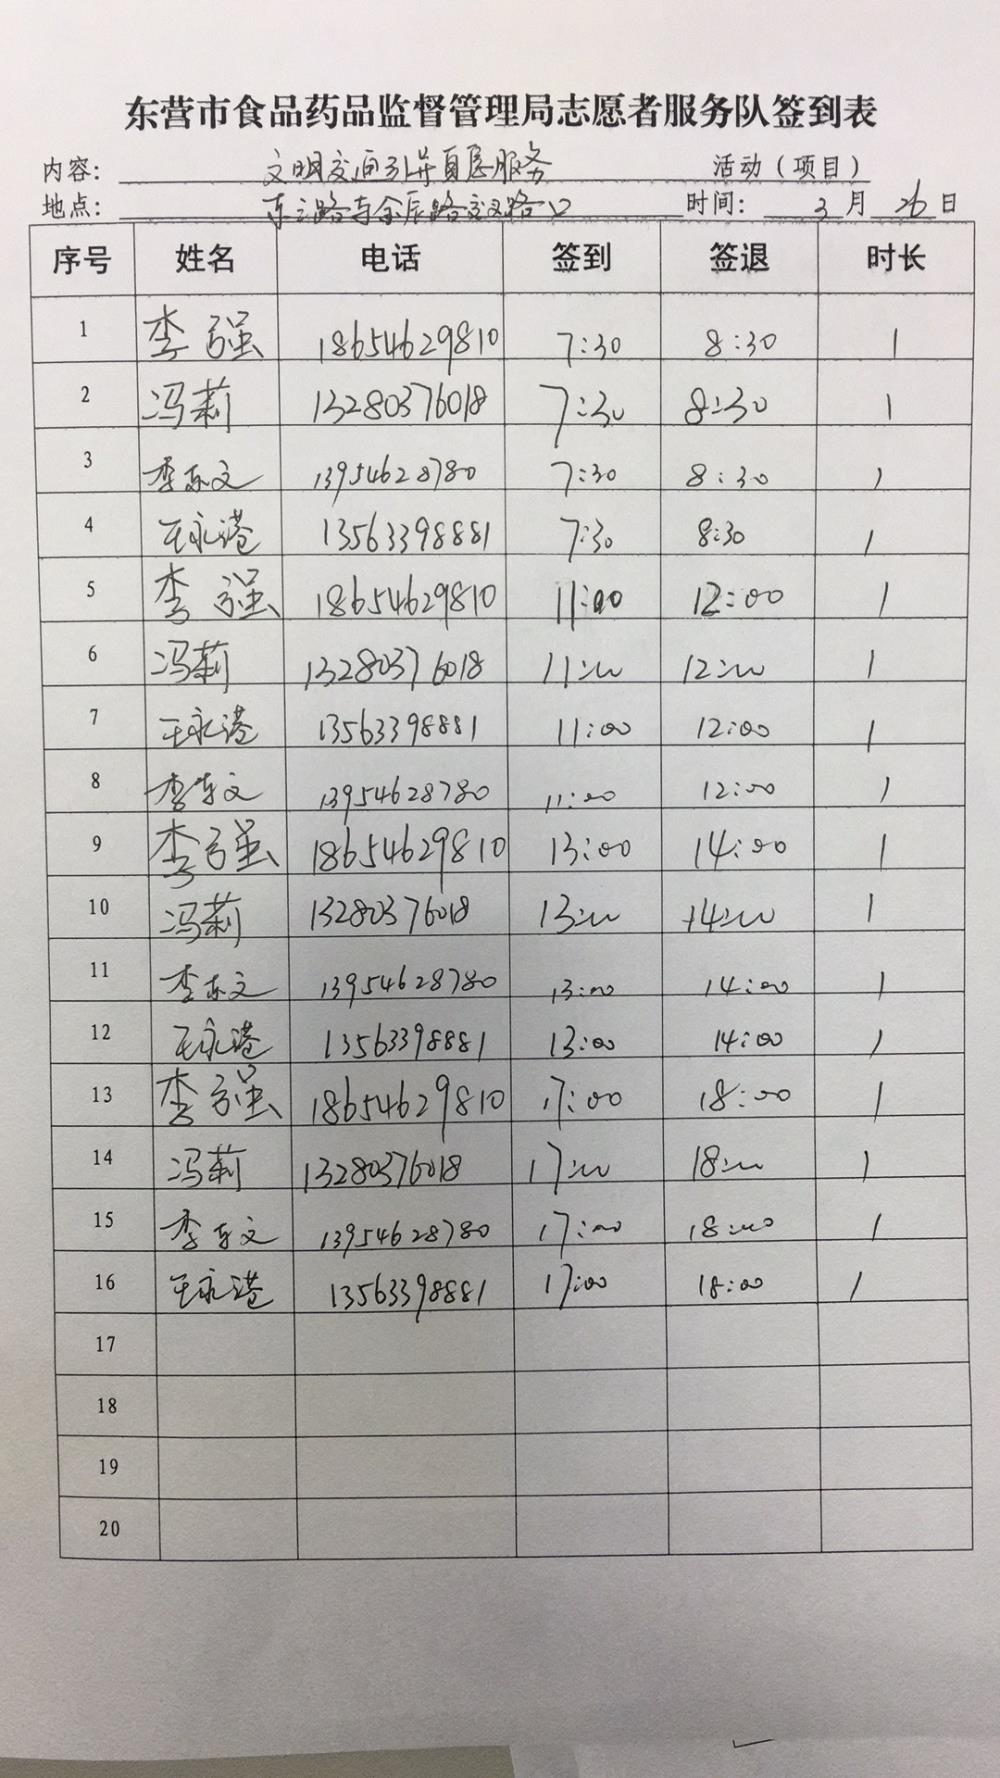 东营市食品药品监督管理局志愿者服务队签到表
内容: 文明交通引导自愿服务 活动（项目）
地点: 东三路与金辰路交叉路口 时间: 3月26日
序号 姓名 电话 签到 签退 时长
1 李强 18654629810 7:30 8:30 1
2 冯莉 13280376018 7:30 8:30 1
3 李东文 13954628780 7:30 8:30 1
4 王永港 13563398881 7:30 8:30 1
5 李强 18654629810 11:00 12:00 1
6 冯莉 13280376018 11:00 12:00 1
7 王永港 13563398881 11:00 12:00 1
8 李东文 13954628780 11:00 12:00 1
9 李强 18654629810 13:00 14:00 1
10 冯莉 13280376018 13:00 14:00 1
11 李东文 13954628780 13:00 14:00 1
12 王永港 13563398881 13:00 14:00 1
13 李强 18654629810 17:00 18:00 1
14 冯莉 13280376018 17:00 18:00 1
15 李东文 13954628780 17:00 18:00 1
16 王永港 13563398881 17:00 18:00 1
17
18
19
20